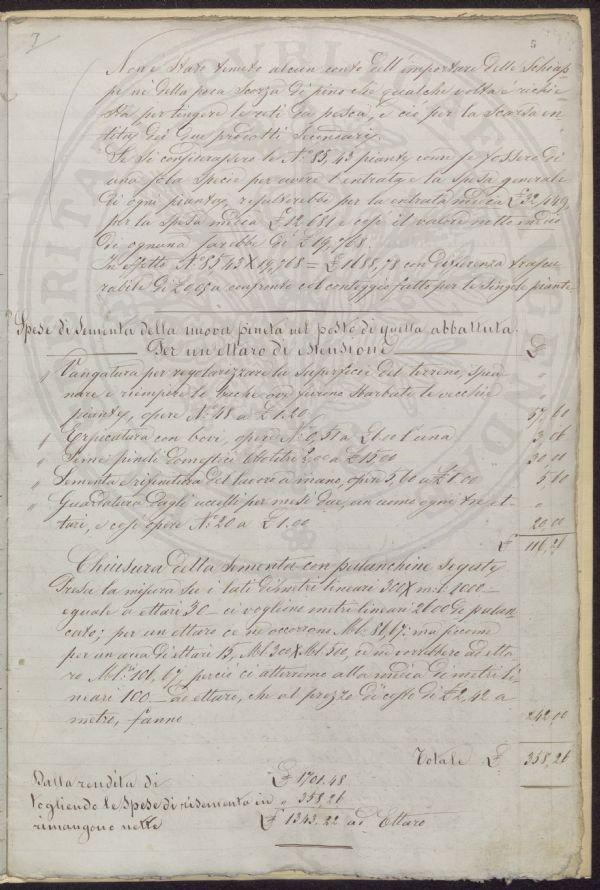 5
Non è stato tenuto alcun conto dell'importare delle Schiap-
pe ne della poca scorza di pino che qualche volta è richie-
sta per tingere le reti da pesca, e ciò per la scarsa en-
tità dei due prodotti secondari.
Se si considerassero le N.° 85,43 piante come se fossero di
una sola specie per avere l'entrata e la spesa generale
di ogni pianta, resulterebbe per la entrata media £ 32,449,
per la spesa media £ 12,681 e così il valore netto medio
di ognuna sarebbe di £ 19,768.
In effetto N.° 85.43 X 19,768 = £ 1688,78 con differenza trascu-
rabile di £ 0,05 a confronto col conteggio fatto per le singole piante
Spese di sementa della nuova pineta nel posto di quella abbattuta.
Per un ettaro di estensione £
" Vangatura per regolarizzare la superficie del terreno, spia-
nare e riempire le buche ove furono sbarbate le vecchie
piante, opere N.° 48 a £ 1.20 57,60
" Erpicatura con bovi, opere N.° 0,51 a £ 6.00 l'una 3,06
" Seme pinoli domestici Ettolitri 2,00 a £ 15.00 30,00
" Sementa e rifinitura del lavoro a mano, opere 5,60 a £ 1.00 5,60
" Guardatura dagli uccelli per mesi due, un uomo ogni tre et-
tari, e così opere N.° 20 a £ 1.00 20,00
£ 116,26
Chiusura della sementa con palanchine segate
Presa la misura su i lati di metri lineari 300 X m.l. 1000
eguale a ettari 30 ci vogliono metri lineari 2600 di palan-
cato; per un ettaro ce ne occorrono Ml. 86,67: ma siccome
per un'area di ettari 15, Ml. 300 X Ml. 500, ce ne vorrebbero ad etta-
ro Ml. 106,67, perciò ci atterremo alla media di metri li-
neari 100 ad ettaro, che al prezzo di costo di £ 2,42 a
metro, fanno 242,00
Totale £ 358,26
Dalla rendita di £ 1701.48
Togliendo le spese di risementa in " 358,26
rimangono nette £ 1343.22 ad Ettaro